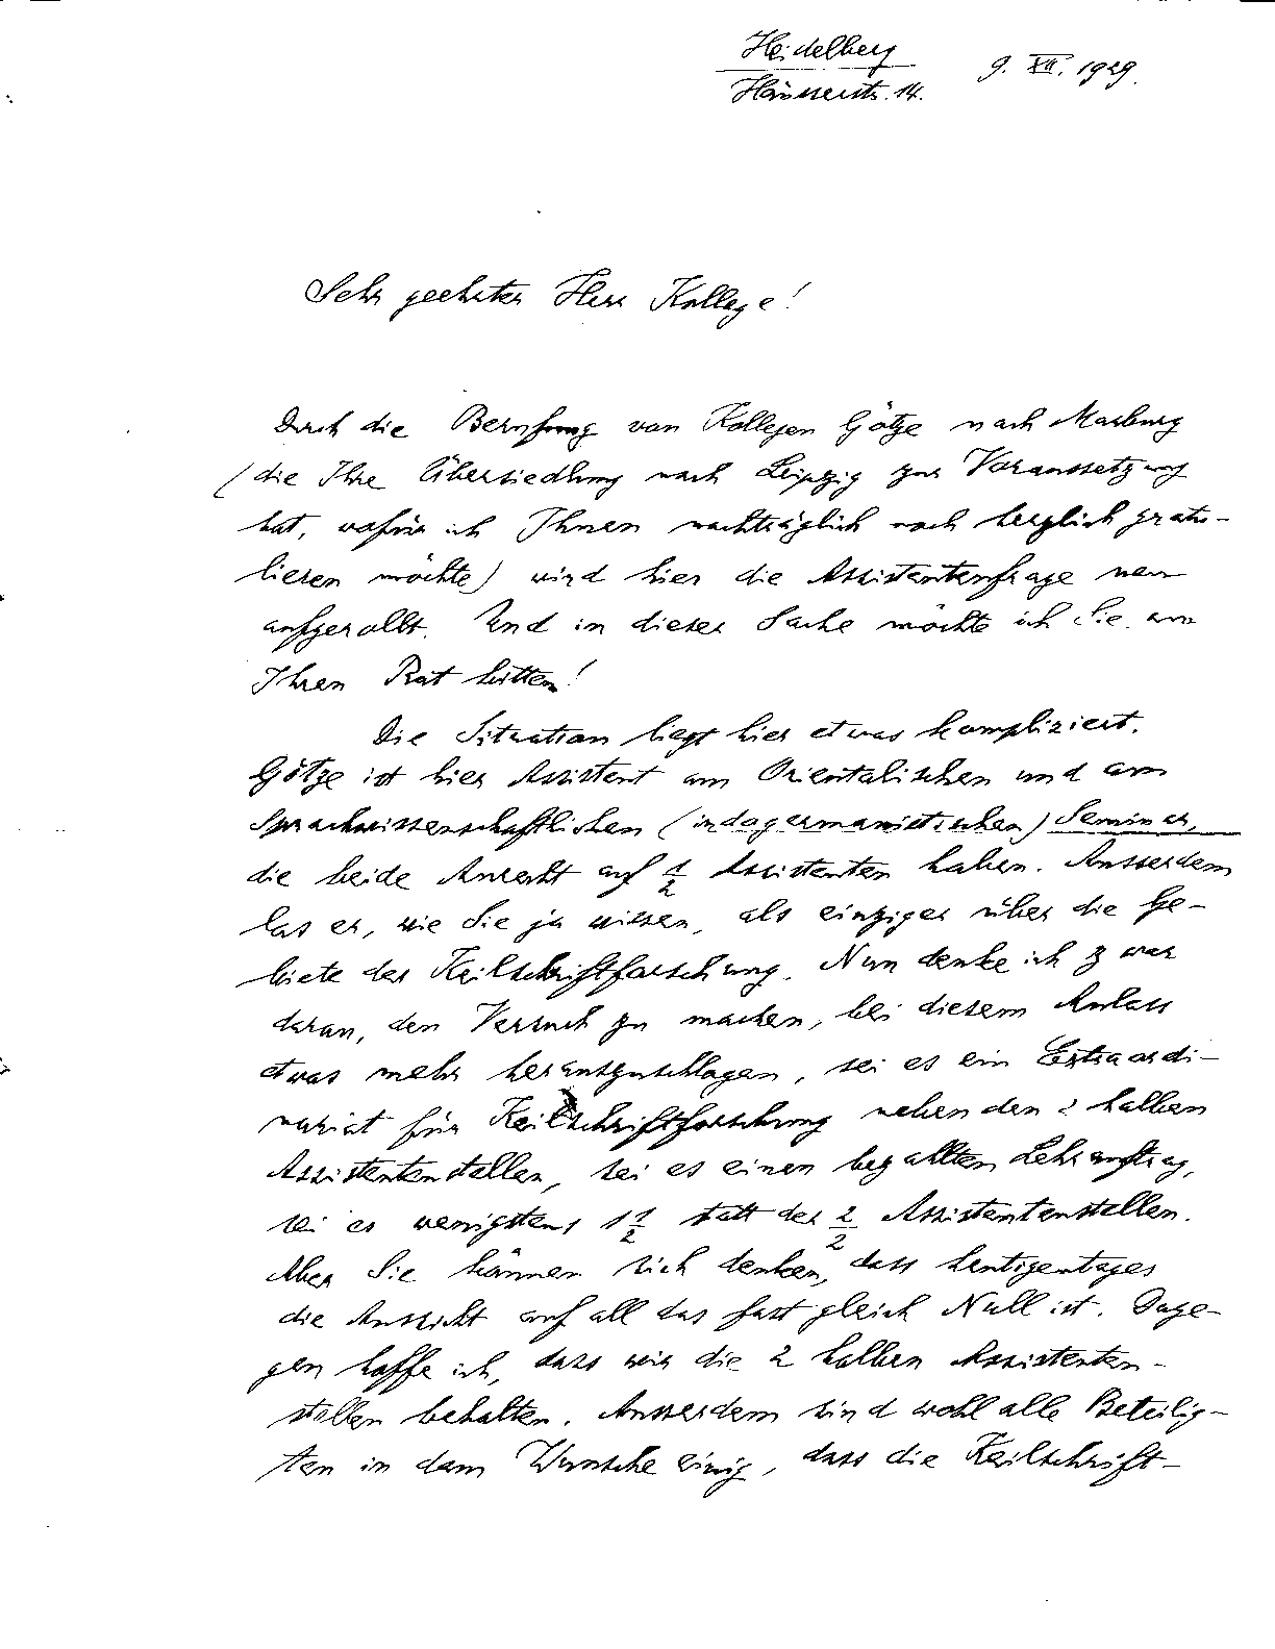 Heidelberg
Häusserstr. 14.
9. XII. 1929.
Sehr geehrter Herr Kollege!
Durch die Berufung von Kollegen Götze nach Marburg
(die Ihre Übersiedlung nach Leipzig zur Voraussetzung
hat, wofür ich Ihnen nachträglich noch herzlich gratu-
lieren möchte) wird hier die Assistentenfrage neu
aufgerollt. Und in dieser Sache möchte ich Sie um
Ihren Rat bitten!
Die Situation liegt hier etwas kompliziert.
Götze ist hier Assistent am Orientalischen und am
Sprachwissenschaftlichen (indogermanistischen) Seminar,
die beide Anrecht auf 1/2 Assistenten haben. Ausserdem
las er, wie Sie ja wissen, als einziger über die Ge-
biete der Keilschriftforschung. Nun denke ich zwar
daran, den Versuch zu machen, bei diesem Anlass
etwas mehr herauszuschlagen, sei es ein Extraordi-
nariat für Keilschriftforschung neben den 2 halben
Assistentenstellen, sei es einen bezahlten Lehrauftrag,
sei es wenigstens 1 1/2 statt der 2/2 Assistentenstellen.
Aber Sie können sich denken, dass heutigentages
die Aussicht auf all das fast gleich Null ist. Dage-
gen hoffe ich, dass wir die 2 halben Assistenten-
stellen behalten. Ausserdem sind wohl alle Beteilig-
ten in dem Wunsche einig, dass die Keilschrift-